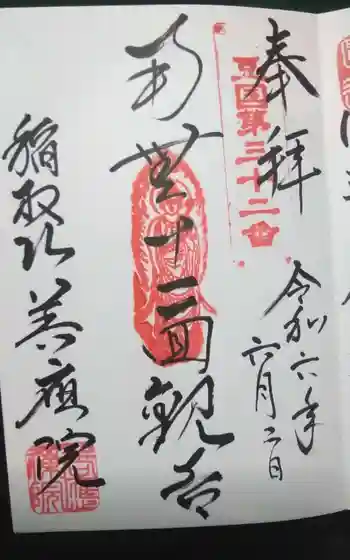 奉拝
豆国第三十二番
令和六年
六月二日
南無十一面観音
稲取善應院